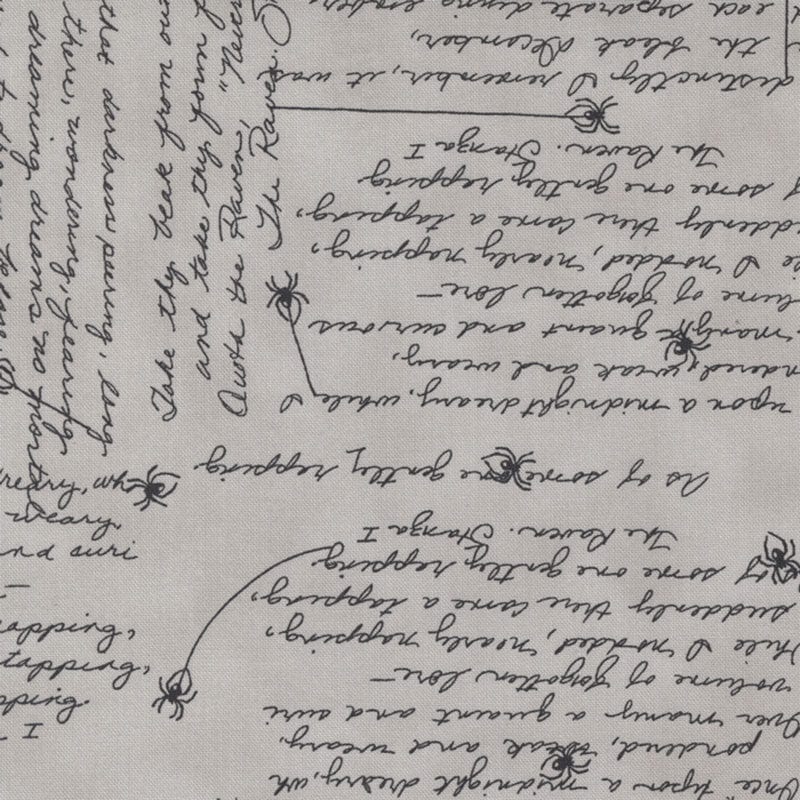 that darkness peering, long
there, wondering, fearing
dreaming dreams no mortal
to dream before
Take thy beak from out
and take thy form f
Quoth the Raven, "Never
The Raven. S
Once upon a midnight dreary, wh
pondered, weak and weary,
Over many a quaint and curi
volume of forgotten lore—
While I nodded, nearly napping,
suddenly there came a tapping,
of some one gently rapping
The Raven. Stanza I
As of some one gently rapping
upon a midnight dreary, while I
ndered, weak and weary,
many quaint and curious
lume of forgotten lore—
le I nodded, nearly napping,
uddenly there came a tapping,
of some one gently rapping
The Raven. Stanza I
distinctly I remember, it was
the bleak December,
each separate dying ember
reary, wh
weary,
nd curi
—
napping,
tapping,
rapping.
I